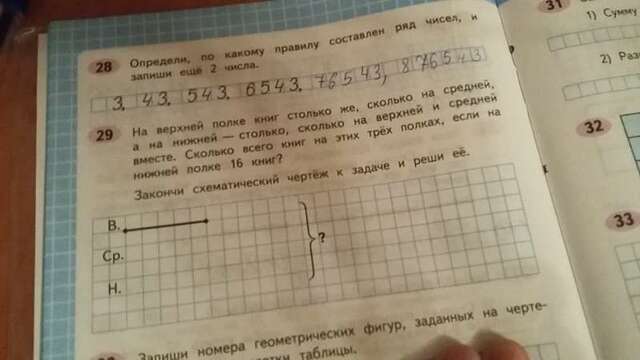 28 Определи, по какому правилу составлен ряд чисел, и
запиши ещё 2 числа.
3, 43, 543, 6543, 76543, 876543
29 На верхней полке книг столько же, сколько на средней,
а на нижней — столько, сколько на верхней и средней
вместе. Сколько всего книг на этих трёх полках, если на
нижней полке 16 книг?
Закончи схематический чертёж к задаче и реши её.
В.
Ср.
Н.
?
Запиши номера геометрических фигур, заданных на черте-
таблицы.
31
1) Сумм
2) Раз
32
33